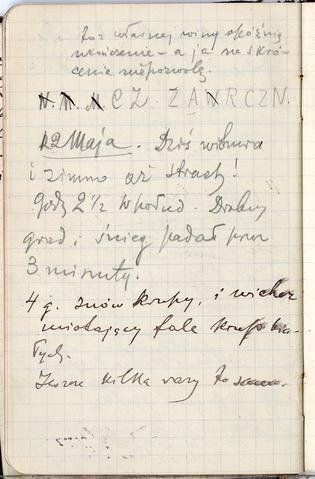 bez własnej winy opóźnię
ukończenie – a ja na skró-
cenie niepozwolę.
N. M. M CZ. ZAWRCZN.
12 Maja. Dziś wichura
i zimno aż strach!
Godz 2 1/2 w połud. Drobny
grad i śnieg padał przez
3 minuty.
4 g. znów krupy, i wicher
miotający fale krup bia-
łych.
Jeszcze kilka razy to samo.